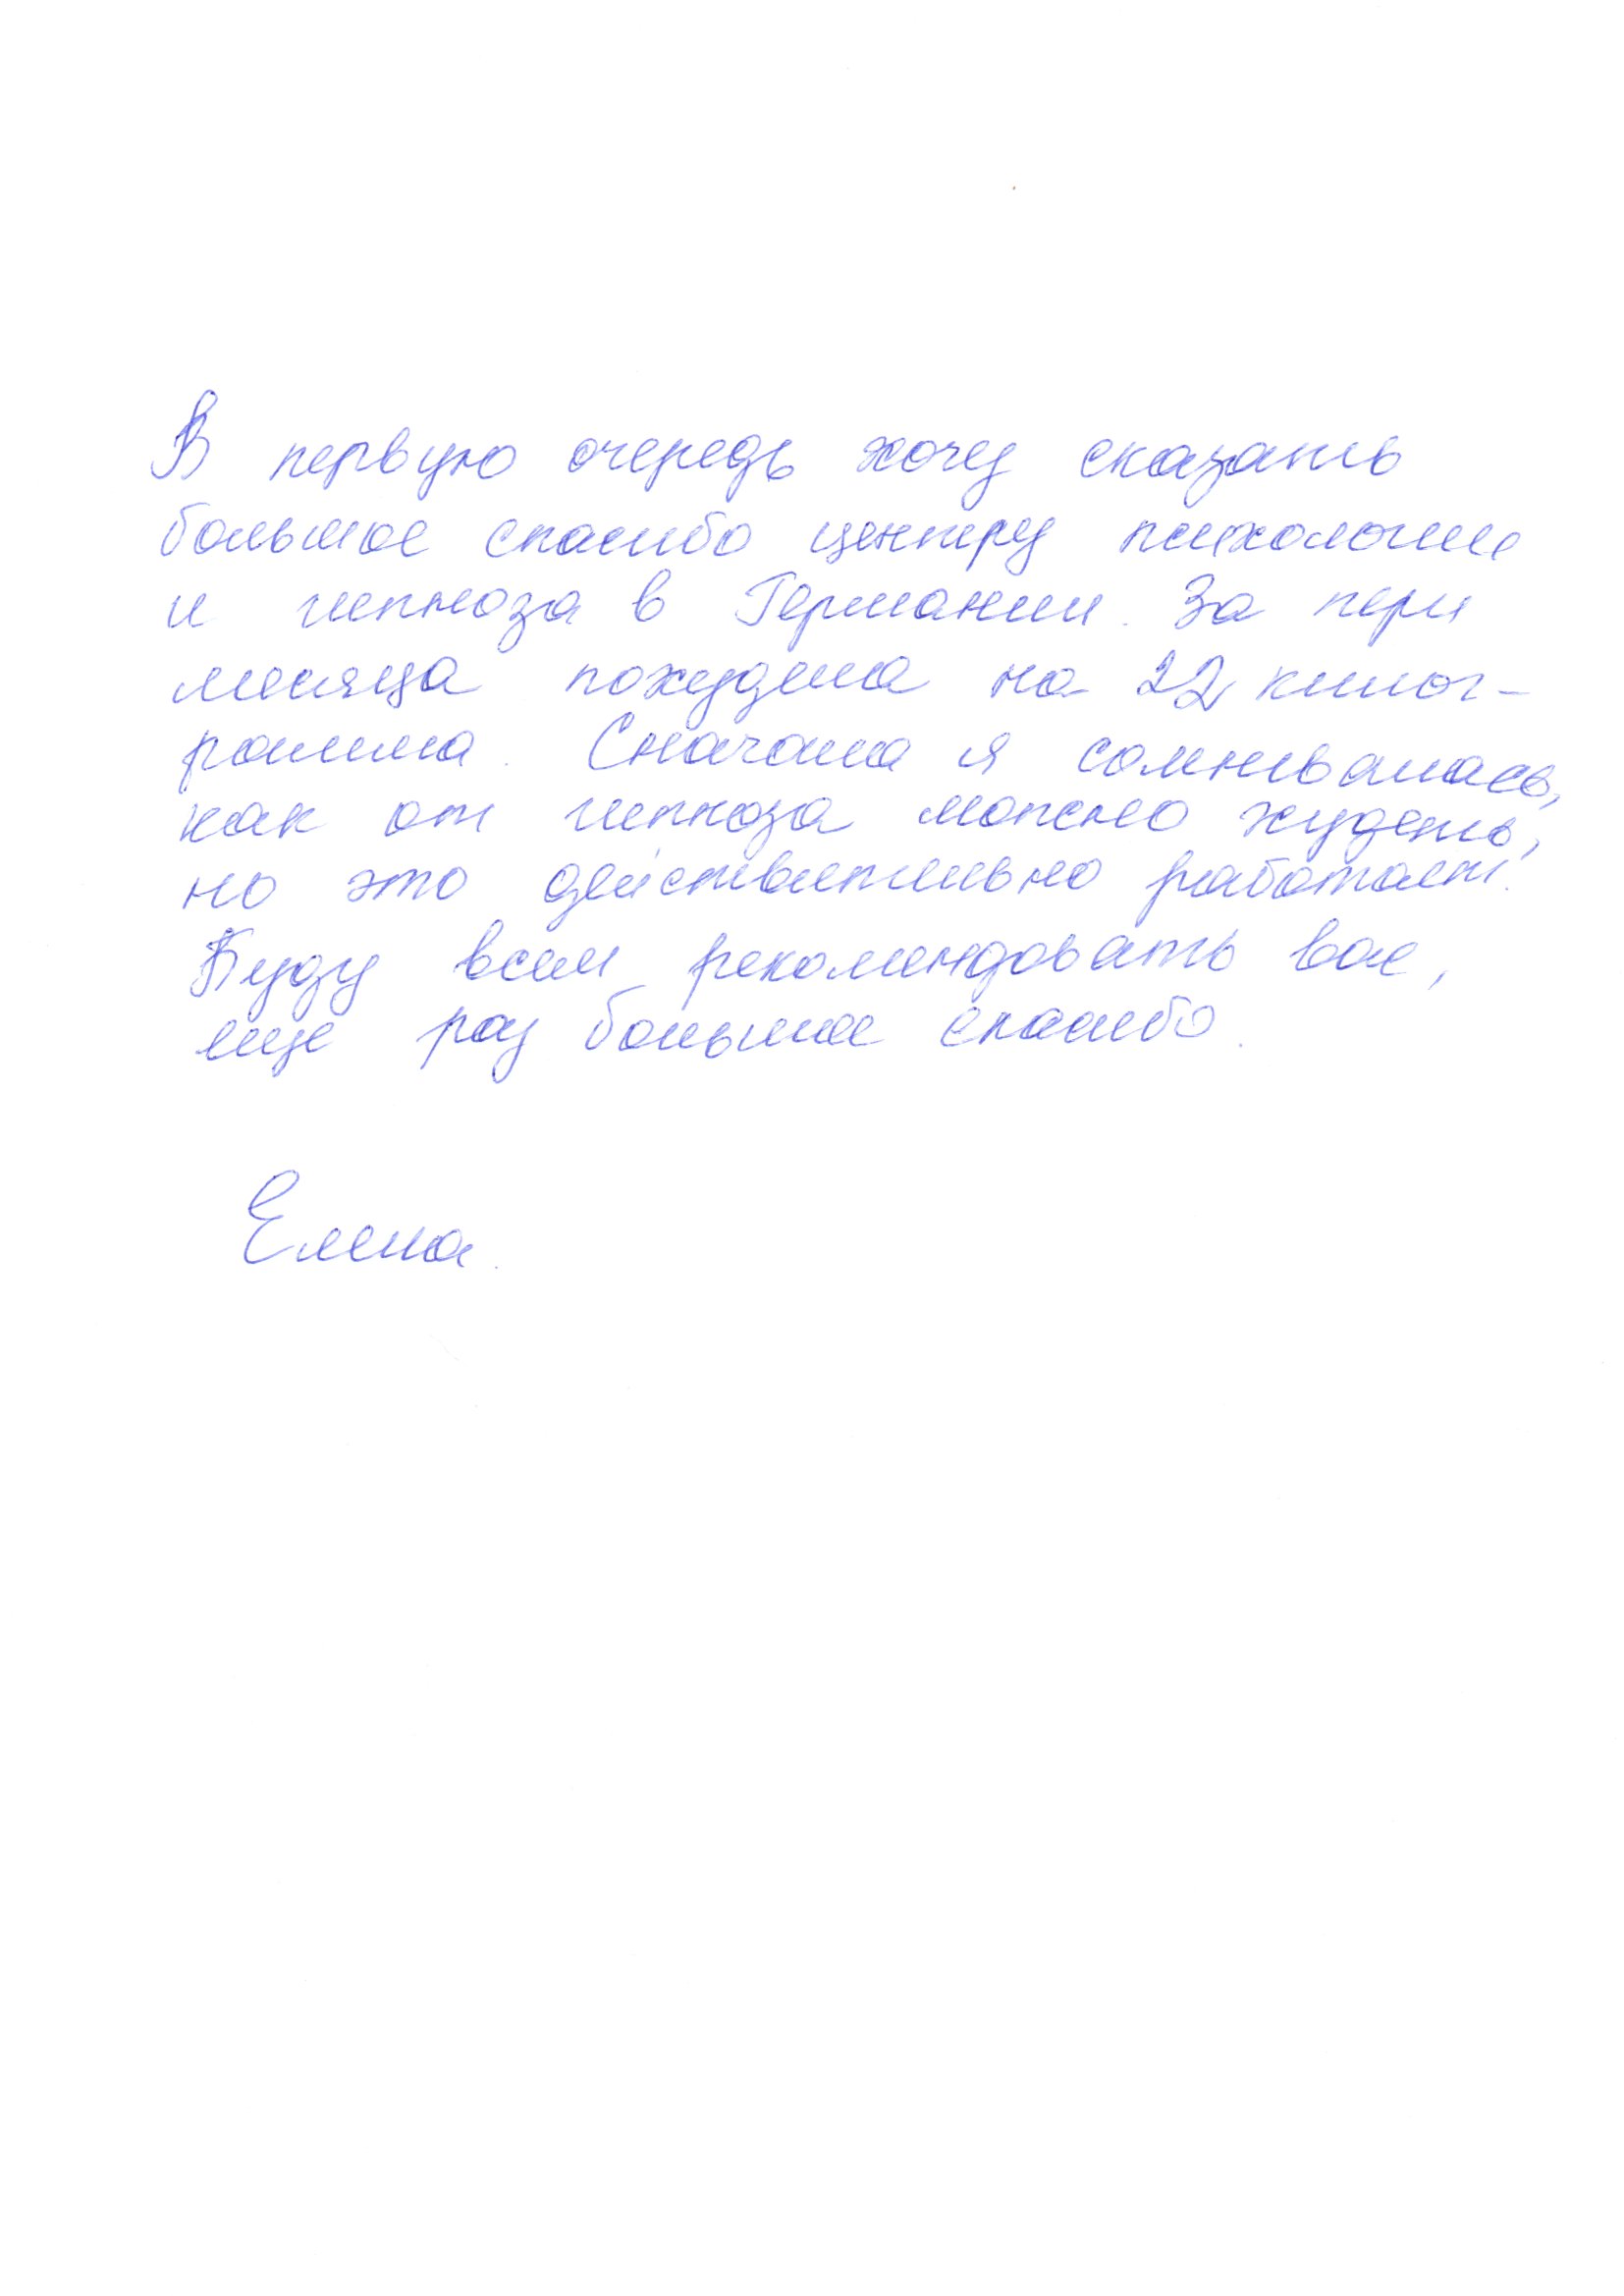 В первую очередь хочу сказать
большое спасибо центру психологии
и гипноза в Германии. За три
месяца похудела на 22 килог-
рамма. Сначала я сомневалась,
как от гипноза можно худеть,
но это действительно работает.
Буду всем рекомендовать вас,
еще раз большое спасибо.
Елена.